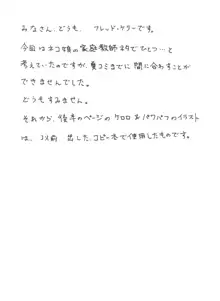 みなさん、どうも、フレッド・ケリーです。
今回はネコ娘の家庭教師ネタでひとつ…と
考えていたのですが、夏コミまでに間に合わすことが
できませんでした。
どうもすみません。
それから、後半のページのケロロ&パワパフのイラスト
は、以前 出した、コピー本で使用したものです。